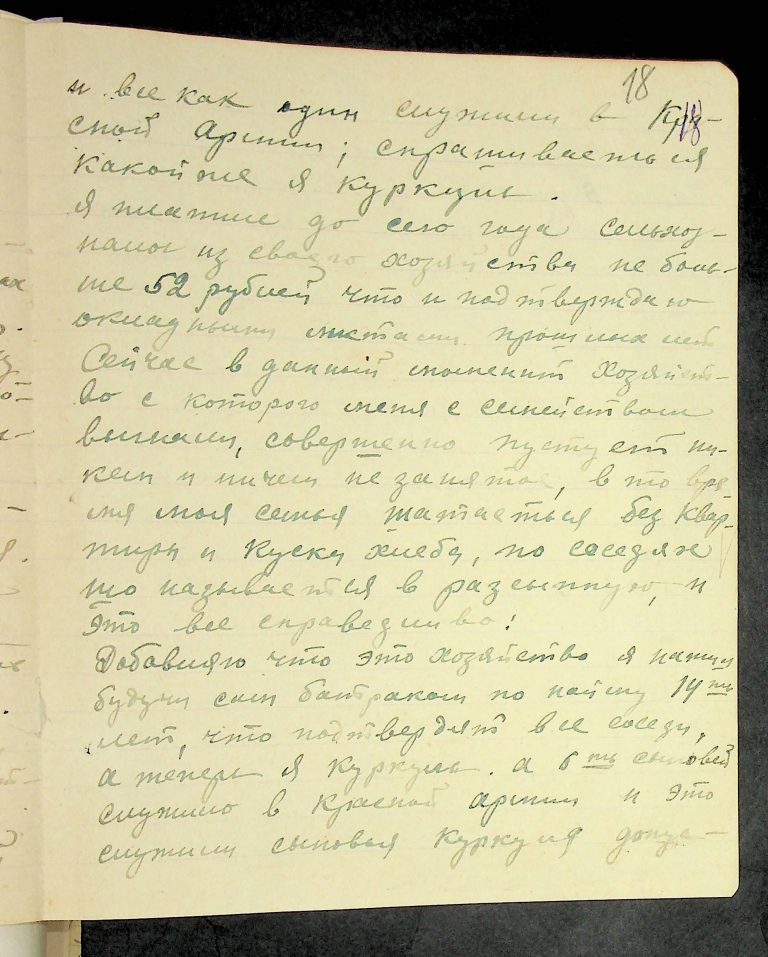 18
18
и все как один служили в Кра-
сной Армии; спрашивается
какой же я куркуль.
я платил до сего года сельхоз-
налог из своего хозяйства не боль-
ше 52 рублей что и подтверждаю
окладными листами прошлых лет
Сейчас в данный момент хозяйст-
во с которого меня с семейством
выгнали, совершенно пустует ни-
кем и ничем не занятое, в то вре
мя моя семья шатается без квар-
тиры и куска хлеба, по соседях
що называется в разсыпную, и
Это все справедливо!
Добавляю что это хозяйство я нажил
будучи сам батраком по найму 14ть
лет, что подтвердят все соседи,
а теперь я куркуль. а 6ть сыновей
служило в красной армии и это
служили сыновья куркуля допус-